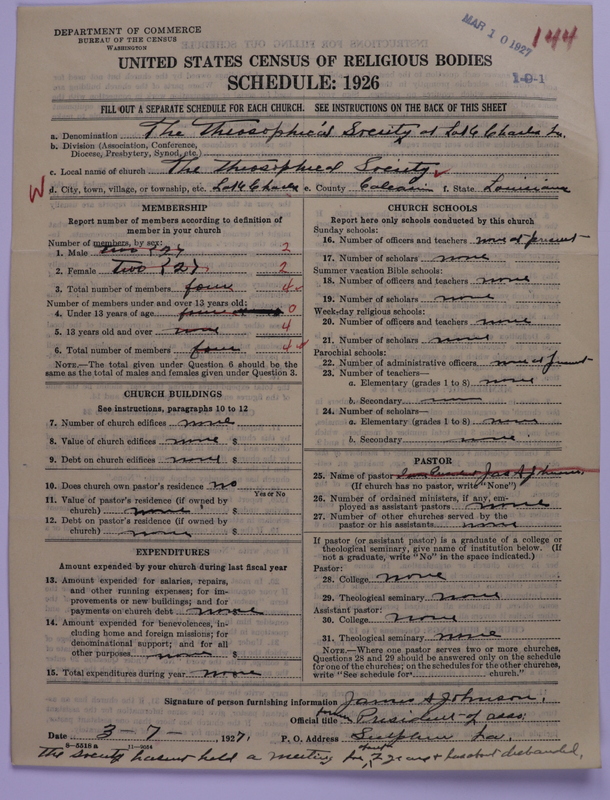 DEPARTMENT OF COMMERCE
BUREAU OF THE CENSUS
WASHINGTON
MAR 10 1927
144
1-9-1
UNITED STATES CENSUS OF RELIGIOUS BODIES
SCHEDULE: 1926
FILL OUT A SEPARATE SCHEDULE FOR EACH CHURCH. SEE INSTRUCTIONS ON THE BACK OF THIS SHEET
a. Denomination The Theosophical Society at Lake Charles La.
b. Division (Association, Conference,
Diocese, Presbytery, Synod, etc.)
c. Local name of church The Theosophical Society
W d. City, town, village, or township, etc. Lake Charles e. County Calcasieu f. State Louisiana
MEMBERSHIP
Report number of members according to definition of
member in your church
Number of members, by sex:
1. Male two 2
2. Female two 2
3. Total number of members four 4
Number of members under and over 13 years old:
4. Under 13 years of age 0
5. 13 years old and over 4
6. Total number of members four 4
NOTE.—The total given under Question 6 should be the
same as the total of males and females given under Question 3.
CHURCH BUILDINGS
See instructions, paragraphs 10 to 12
7. Number of church edifices none
8. Value of church edifices none $
9. Debt on church edifices none $
10. Does church own pastor's residence no
Yes or No
11. Value of pastor's residence (if owned by
church) none $
12. Debt on pastor's residence (if owned by
church) none $
EXPENDITURES
Amount expended by your church during last fiscal year
13. Amount expended for salaries, repairs,
and other running expenses; for im-
provements or new buildings; and for
payments on church debt none
14. Amount expended for benevolences, in-
cluding home and foreign missions; for
denominational support; and for all
other purposes none $
15. Total expenditures during year none
CHURCH SCHOOLS
Report here only schools conducted by this church
Sunday schools:
16. Number of officers and teachers none at present
17. Number of scholars none
Summer vacation Bible schools:
18. Number of officers and teachers none
19. Number of scholars none
Week-day religious schools:
20. Number of officers and teachers none
21. Number of scholars none
Parochial schools:
22. Number of administrative officers none at present
23. Number of teachers—
a. Elementary (grades 1 to 8) none
b. Secondary none
24. Number of scholars—
a. Elementary (grades 1 to 8) none
b. Secondary none
PASTOR
25. Name of pastor Jas A Johnson
(If church has no pastor, write "None")
26. Number of ordained ministers, if any, em-
ployed as assistant pastors none
27. Number of other churches served by the
pastor or his assistants none
If pastor (or assistant pastor) is a graduate of a college or
theological seminary, give name of institution below. (If
not a graduate, write "No" in the space indicated.)
Pastor:
28. College none
29. Theological seminary none
Assistant pastor:
30. College none
31. Theological seminary none
NOTE.—Where one pastor serves two or more churches,
Questions 28 and 29 should be answered only on the schedule
for one of the churches; on the schedules for the other churches,
write "See schedule for church."
Signature of person furnishing information James A Johnson,
Official title President of asso.
Date 3-7- 1927. P. O. Address Sulphur La.
8-5518 a 11-9034
The society has not held a meeting for 2 years & has about disbanded.